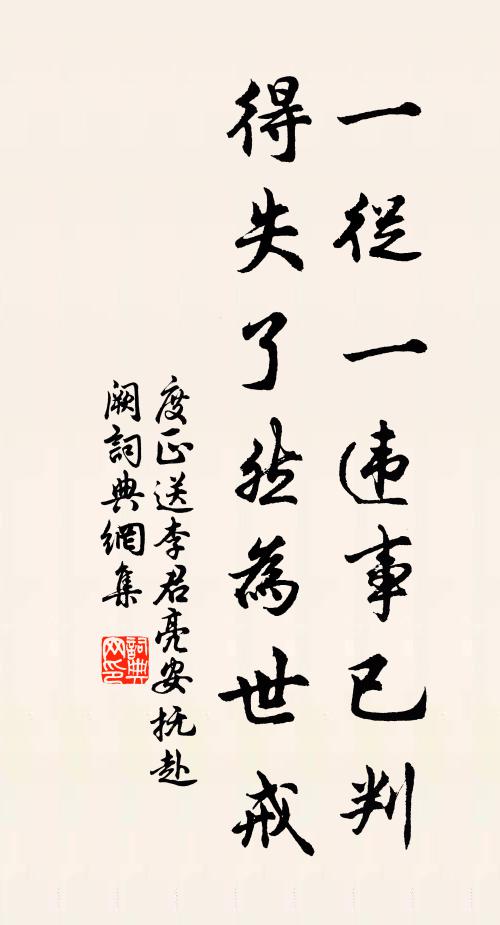 一從一違事已判
得失了然為世戒
度正送李君亮安抚赴
阙詞典網集
詞典
网印